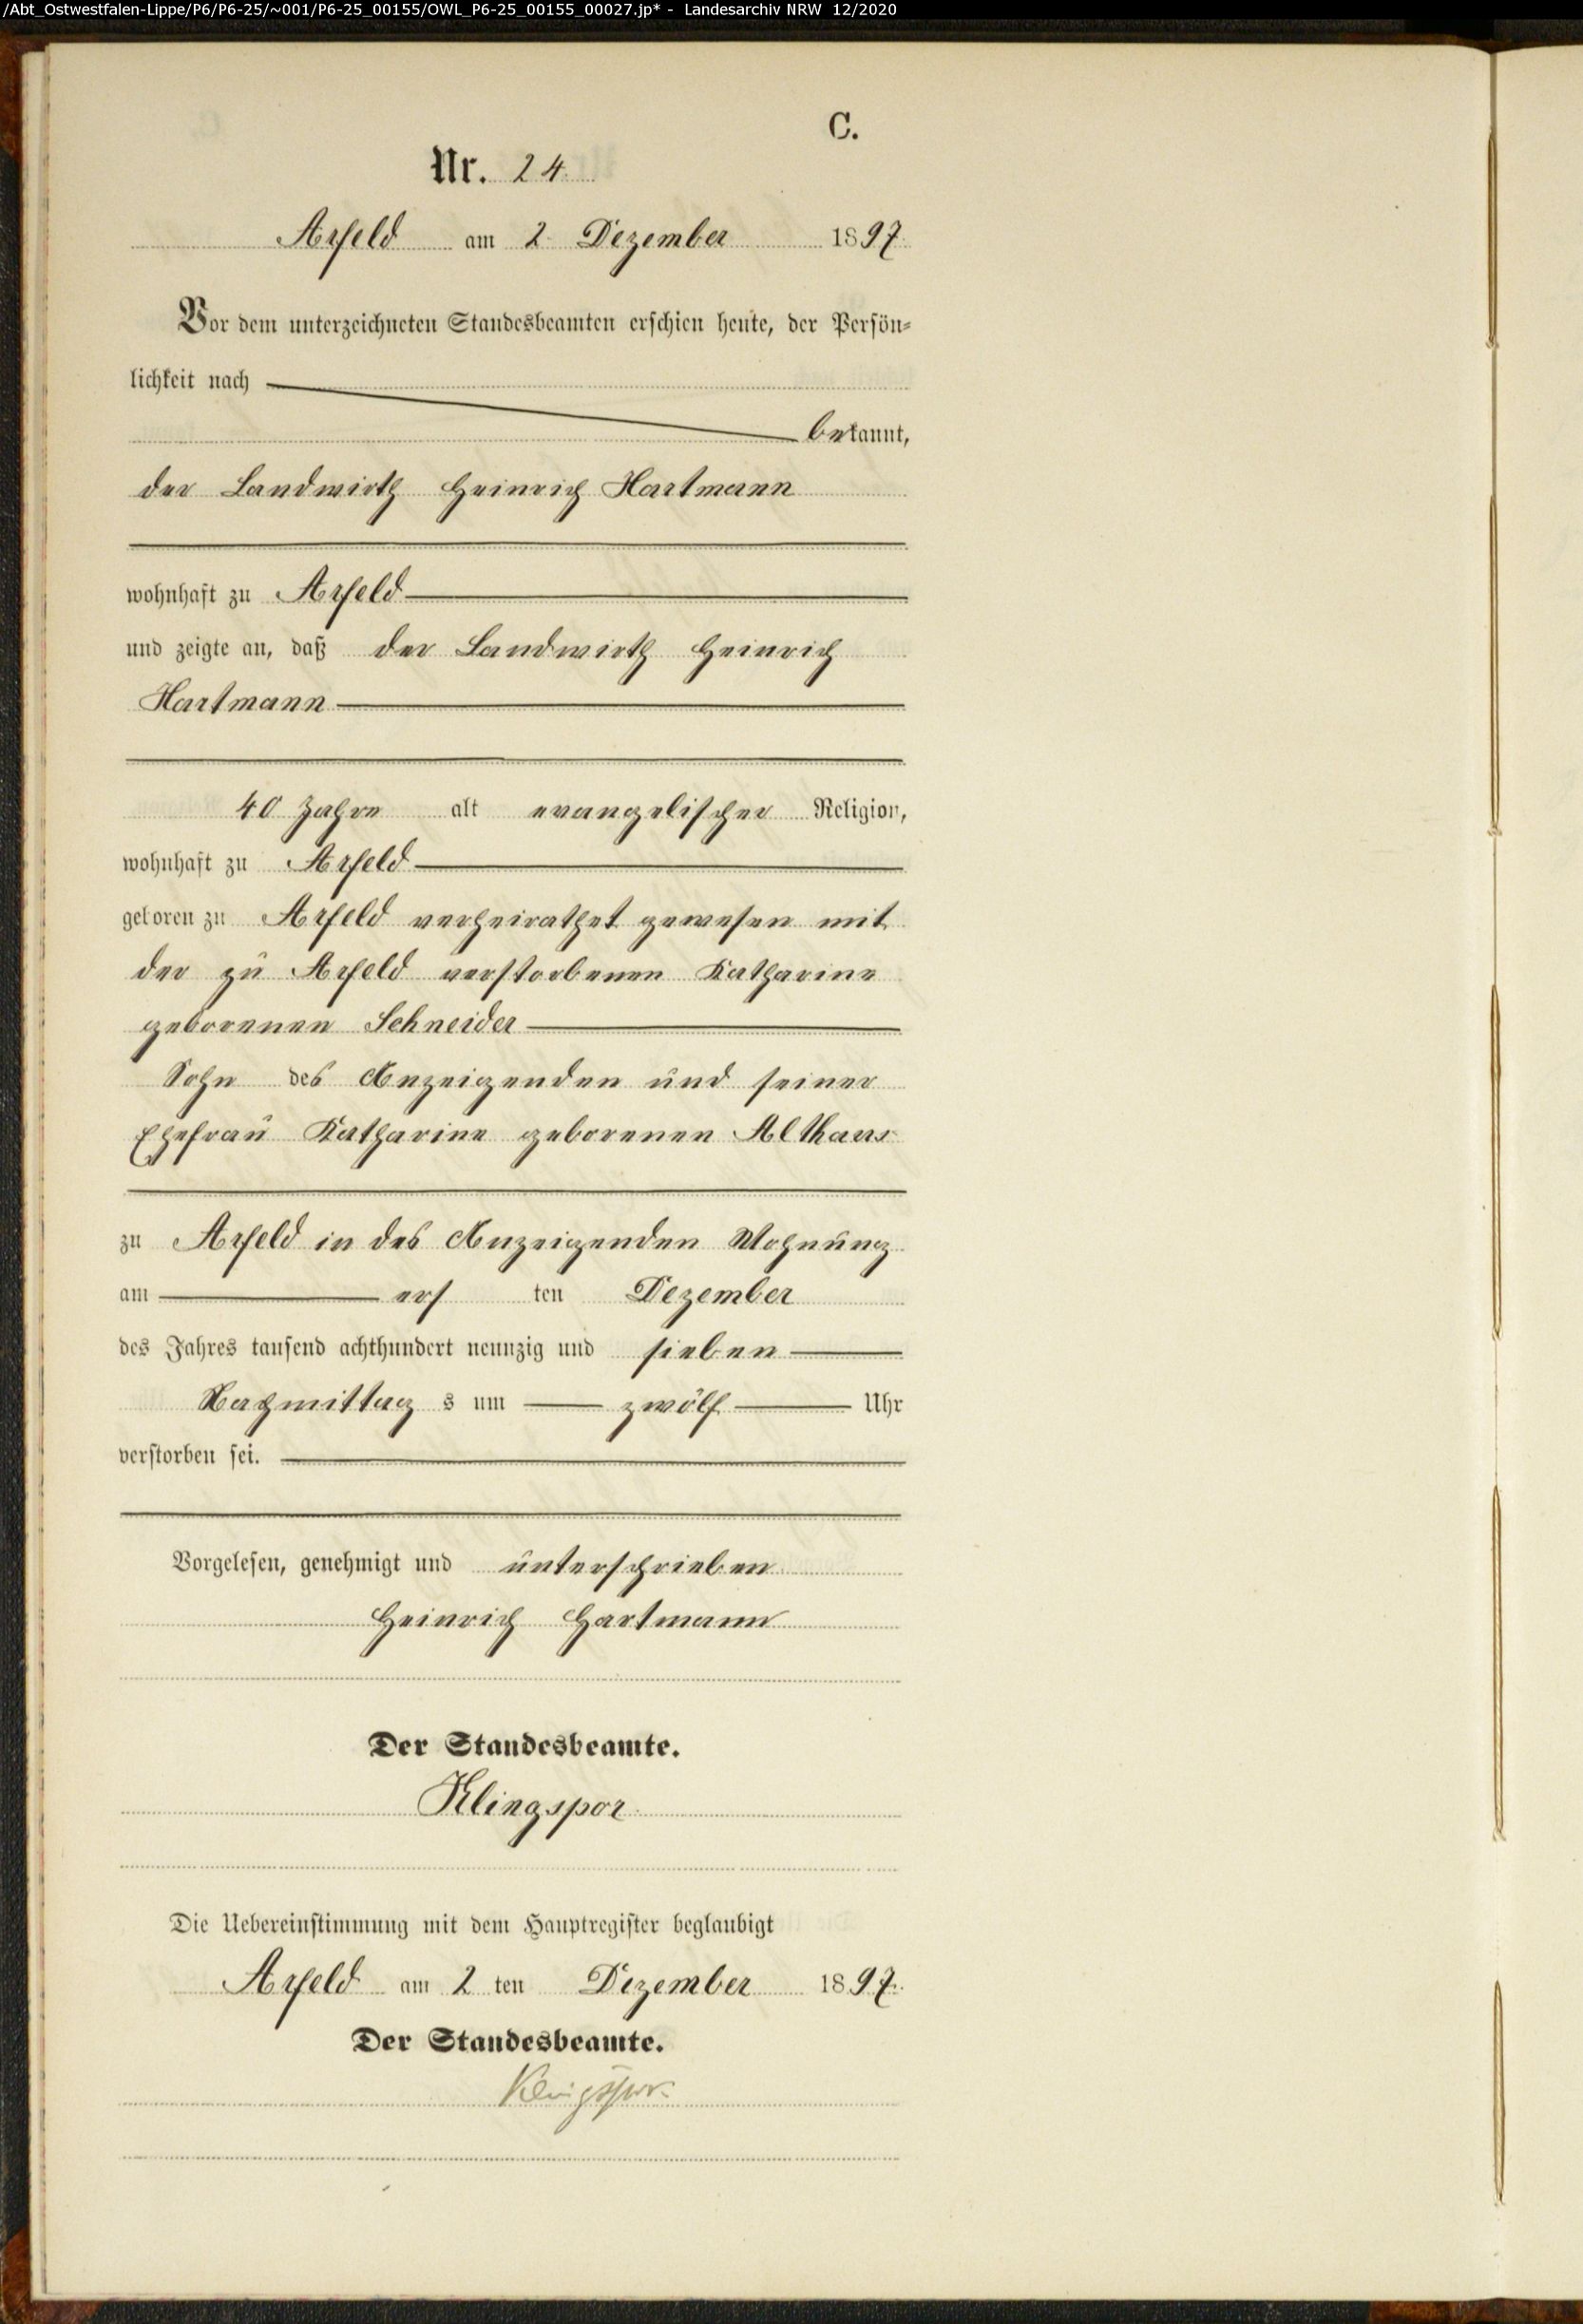 /Abt_Ostwestfalen-Lippe/P6/P6-25/~001/P6-25_00155/OWL_P6-25_00155_00027.jp* - Landesarchiv NRW 12/2020
C.
Nr. 24
Arfeld am 2. Dezember 1897.
Vor dem unterzeichneten Standesbeamten erschien heute, der Persön-
lichkeit nach
bekannt,
der Landwirth Heinrich Hartmann
wohnhaft zu Arfeld
und zeigte an, daß der Landwirth Heinrich
Hartmann
40 Jahre alt evangelischer Religion,
wohnhaft zu Arfeld
geboren zu Arfeld verheirathet gewesen mit
der zu Arfeld verstorbenen Katharine
geborenen Schneider
Sohn des Anzeigenden und seiner
Ehefrau Katharine geborenen Althaus
zu Arfeld in des Anzeigenden Wohnung
am ers ten Dezember
des Jahres tausend achthundert neunzig und sieben
Nachmittag s um zwölf Uhr
verstorben sei.
Vorgelesen, genehmigt und unterschrieben
Heinrich Hartmann
Der Standesbeamte.
Klingspor
Die Uebereinstimmung mit dem Hauptregister beglaubigt
Arfeld am 2 ten Dezember 1897.
Der Standesbeamte.
Klingspor.